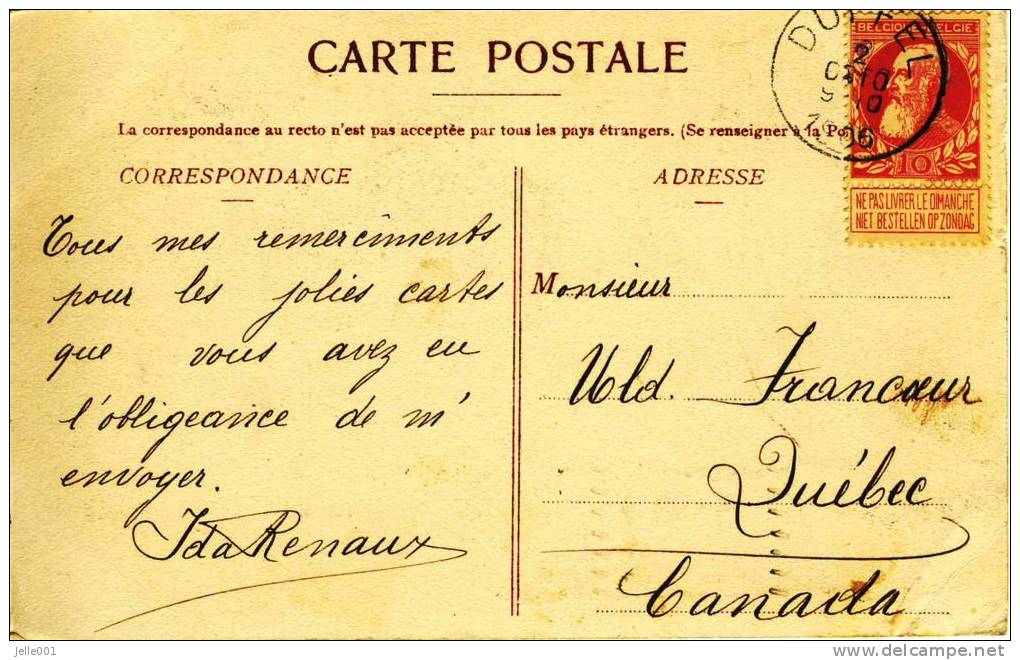 CARTE POSTALE
La correspondance au recto n'est pas acceptée par tous les pays étrangers. (Se renseigner à la Po
CORRESPONDANCE
Tous mes remerciments
pour les jolies cartes
que vous avez eu
l'obligeance de m'
envoyer.
Ida Renaux
ADRESSE
Monsieur
Uld. Francœur
Québec
Canada
BELGIQUE BELGIE
10
NE PAS LIVRER LE DIMANCHE
NIET BESTELLEN OP ZONDAG
DUFFEL
2
OCTO
9-10
1906
jelle001
delcampe.net